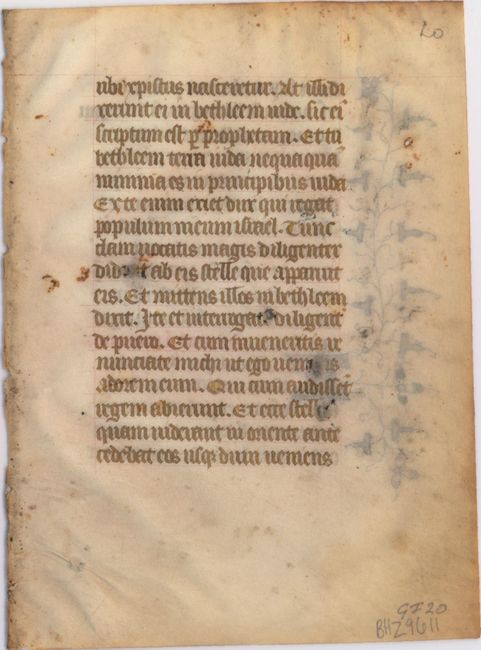 20
ubi xpistus nasceretur. At illi di
xerunt ei in bethleem iude. sic eī
scriptum est p̄ prophetam. Et tu
bethleem terra iuda nequaquā
minima es in principibus iuda
Ex te enim exiet dux qui regat
populum meum israel. Tunc
clam uocatis magis diligenter
ab eis stelle que apparuit
eis. Et mittens illos in bethleem
dixit. Ite et interrogate diligent
de puero. Et cum inueneritis re
nunciate michi ut ego ueniens
adorem eum. Qui cum audissēt
regem abierunt. Et ecce stella
quam uiderant in oriente ante
cedebat eos usqꝫ dum ueniens
GZ20
BHZ9611